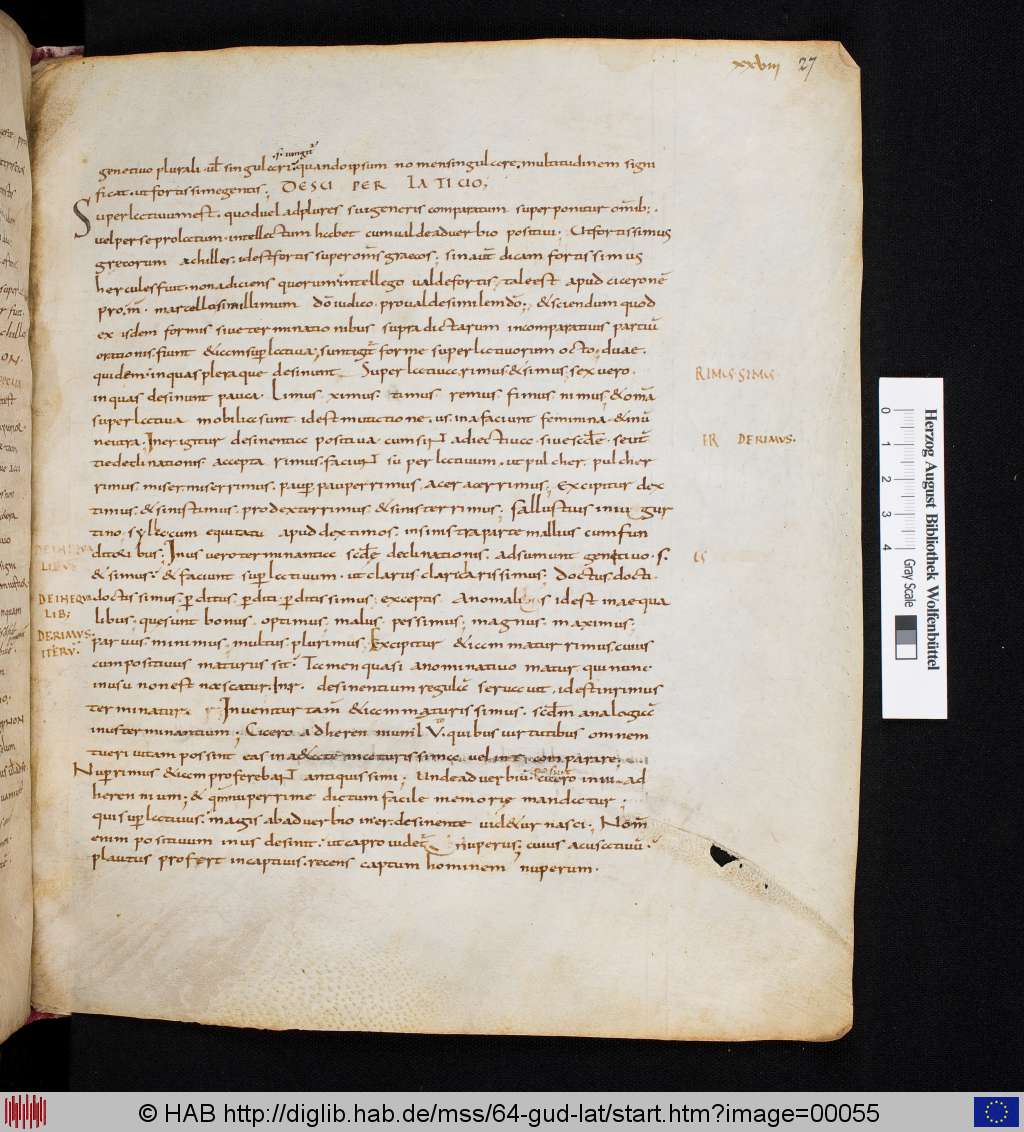 xxviii 27
genetivo plurali · vel singulari · quando ipsum nomen singulare, multitudinem signi
ficat · ut fortissime gentis ; DE SUPERLATIVO ;
Superlativum est · quod vel ad plures sui generis comparatum superponitur omib; ·
vel per se prolatum · intellectum habet cum valde adverbio positivi ; Ut fortissimus
grecorum achilles · id est fortis super oms graecos ; sin aut dicam fortissimus
hercules fuit · non adiciens quorum · intellego valde fortis ; tale est apud ciceronē
pro · m̄ · marcello simillimum dō iudico · pro valde similem dō ; & sciendum quod
ex isdem formis sive terminationibus supra dictarum in comparativis partiū
orationis · fiunt & iam supłativa ; sunt igit forme superlativorum octo · duae ·
quidem in quas pleraque desinunt Superlativa, rimus & simus ; sex vero ·
in quas desinunt pauca · limus · ximus · timus remus · fimus nimus ; & omā
superlativa mobilia sunt id est mutatione · us · in a faciunt feminina · & in ū
neutra · In er igitur desinentia positiva cum sint adiectiva · sive scdē · seu t
tie declinationis · accepta rimus · faciunt superlativum · ut pulcher · pulcher
rimus · miser · miserrimus · paup pauperrimus · acer acerrimus ; Excipitur dex
timus · & sinistimus · pro dexterrimus & sinisterrimus ; sallustius in iugur
tino · sylla cum equitatu apud dextimos · in sinistra parte mallius cum fun
ditoribus ; In us vero terminantia scdē declinationis · adsumunt genetivo · s ·
& simus · & faciunt supłativum · ut clarus clari clarissimus ; doctus docti ·
doctissimus · pditus pditi · pditissimus ; exceptis Anomalis id est inaequa
libus · que sunt bonus · optimus · malus · pessimus ; magnus · maximus ;
parvus minimus ; multus · plurimus ; Excipitur & iam maturrimus, cuius
cum positivus maturus sit · Tamen quasi a nominativo matur qui nunc
in usu non est nascatur · In r · desinentium regulā servavit · id est in rimus
terminatur · Invenitur tam & iam maturissimus · scdm analogiā
in us terminantium ; Cicero ad herennium · V · quibus virtutibus omnem
tueri vitam possint eas in adiecte maturissime vel int comparare ;
Nuperrimus & iam proferebant antiquissimi ; Unde adverbiū · cicero in ad
herennium ; & qm nuperrime dictum facile memorię mandatur ;
qui supłativus · magis ab adverbio in er · desinente videtur nasci ; Nom
enim positivum in us desinit · ut capro videt nuperus ; cuius acusativū ·
plautus profert in captivis · recens captum hominem nuperum ·
RIMUS SIMUS
IR DERIMUS ·
DEINEQUA
LIB;
DERIMUS ·
ITERV̄ ·
Herzog August Bibliothek Wolfenbüttel
0 1 2 3 4
Gray Scale
© HAB http://diglib.hab.de/mss/64-gud-lat/start.htm?image=00055